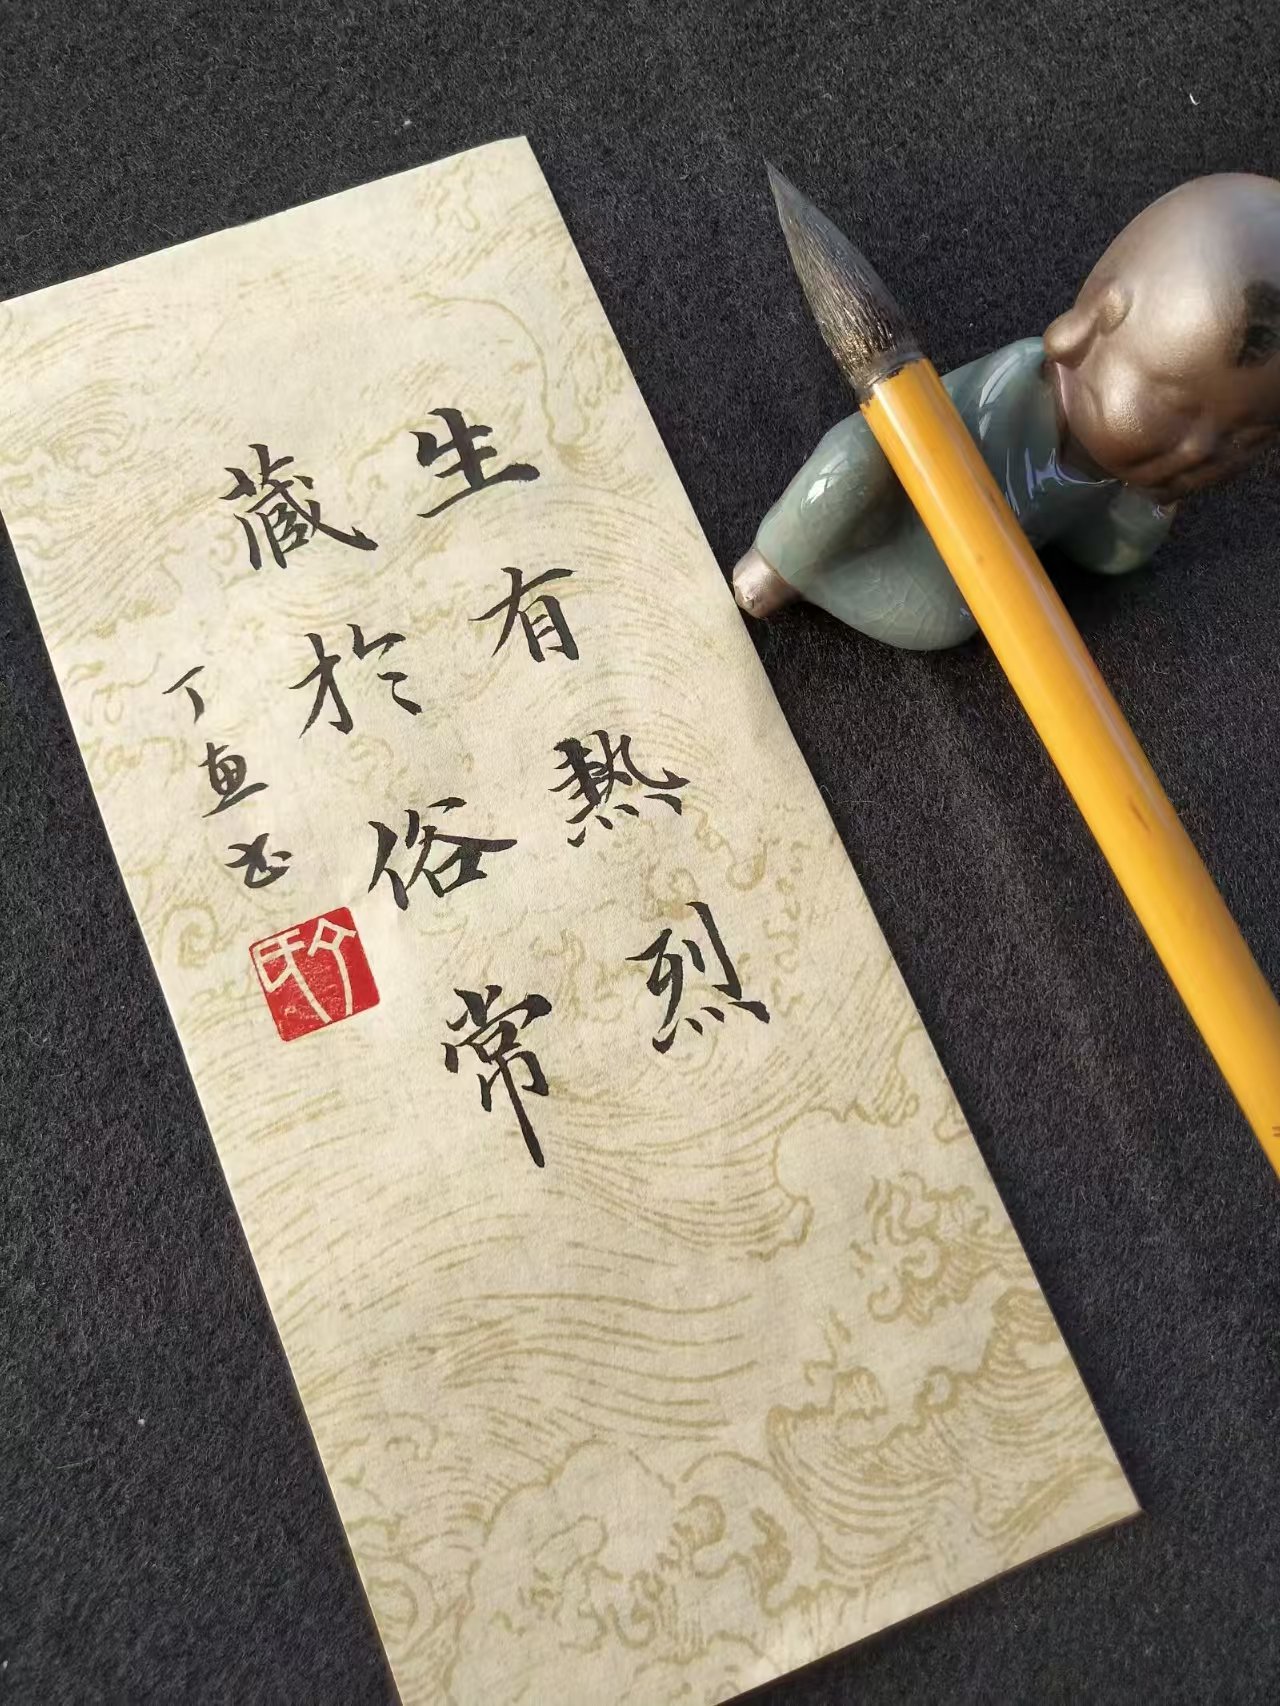 生有熱烈
藏於俗常
丁惠书